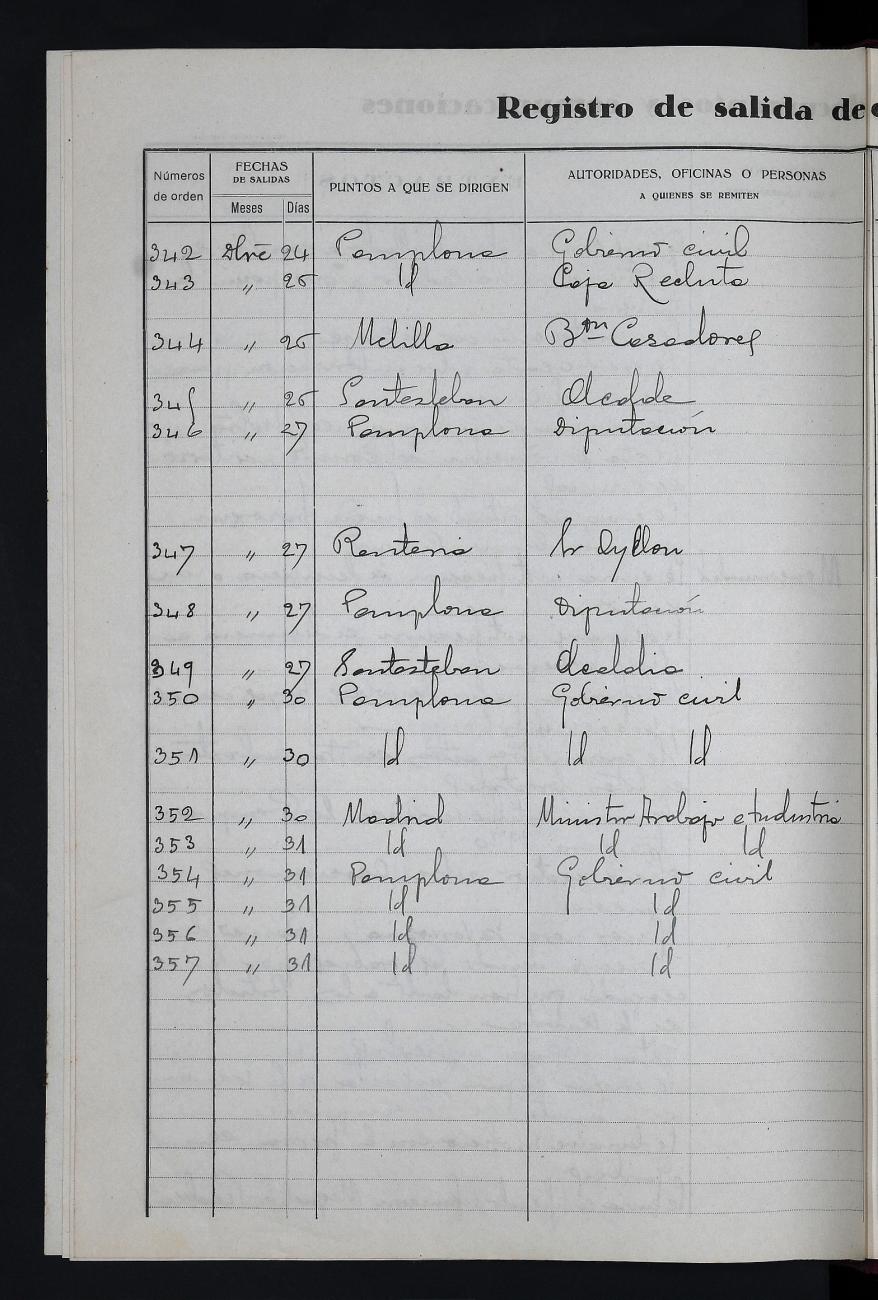 Registro de salida de
Números de orden
FECHAS DE SALIDAS
Meses Días
PUNTOS A QUE SE DIRIGEN
AUTORIDADES, OFICINAS O PERSONAS
A QUIENES SE REMITEN
342 Dbre 24 Pamplona Gobierno civil
343 " 26 Id Caja Recluta
344 " 26 Melilla Bón Casadores
345 " 26 Santesteban Alcalde
346 " 27 Pamplona Diputación
347 " 27 Renteria Sr
348 " 27 Pamplona Diputación
349 " 27 Santesteban Alcaldia
350 " 30 Pamplona Gobierno civil
351 " 30 Id Id Id
352 " 30 Madrid Ministro Trabajo e Industria
353 " 31 Id Id Id
354 " 31 Pamplona Gobierno civil
355 " 31 Id Id
356 " 31 Id Id
357 " 31 Id Id